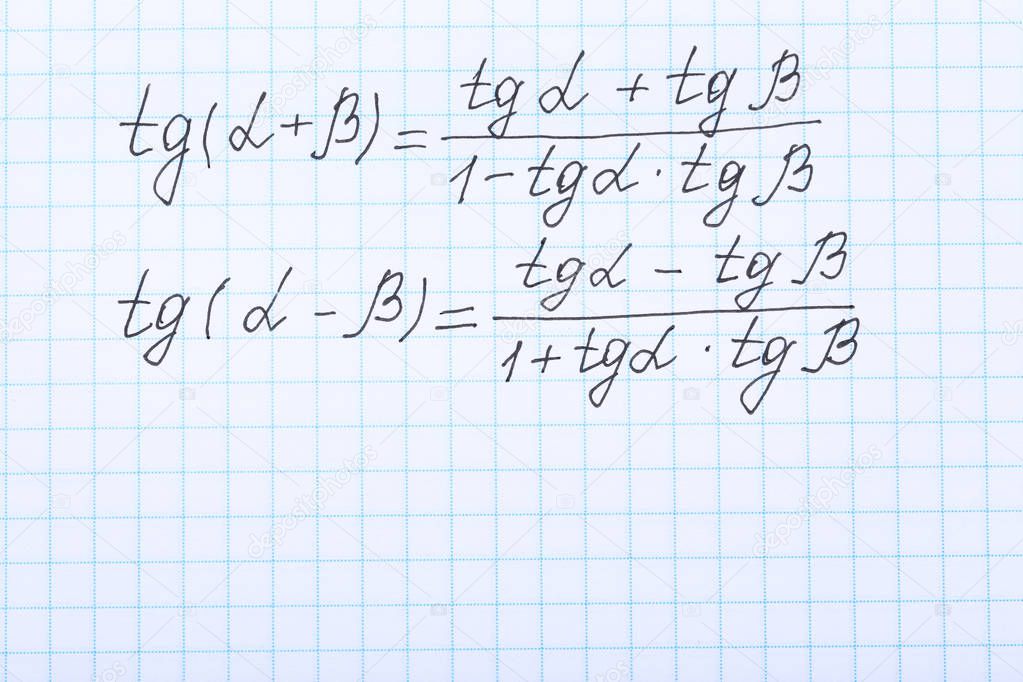 tg(α+β)=(tgα + tgβ)/(1-tgα·tgβ)
tg(α-β)=(tgα - tgβ)/(1+tgα·tgβ)
depositphotos